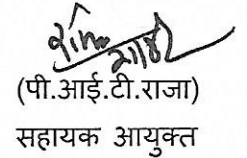 (पी.आई.टी.राजा)
सहायक आयुक्त